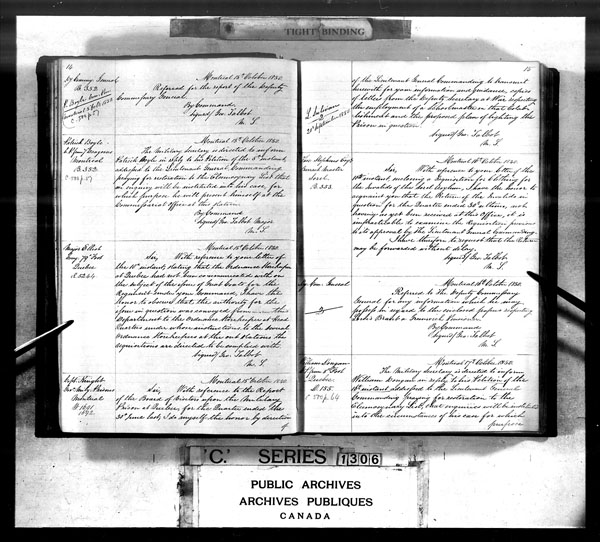 TIGHT BINDING
14
Dy Commy General
B. 353
Montreal 15th October 1850.
Referred for the report of the Deputy
Commissary General.
By Command.
Signed Geo. Talbot.
M. S.
Patrick Boyle
Montreal
B. 353
Montreal 15th October 1850.
The Military Secretary is directed to inform
Patrick Boyle in reply to his Petition of the
addressed to the Lieutenant General Commanding,
praying for restoration to the Commutation List that
an inquiry will be instituted into his case, for
which purpose he will present himself at the
Commissariat office at this station.
By Command
Signed Geo. Talbot Major
M. S.
Major Elliot
Comg. 79th Foot
Quebec
E. 5264
Montreal 15th October 1850.
Sir, With reference to your letter of
the 11th instant, stating that the Ordnance Storekeeper
at Quebec had not been communicated with on
the subject of the issue of Great Coats for the
Regiment under your Command, I have the
honor to observe that the authority for the
issue in question was conveyed from
Department to the Ordnance Storekeeper at Head
Quarters under whose instructions to the several
Ordnance Storekeepers at the out stations the
requisitions are directed to be complied with.
Signed Geo. Talbot
M. S.
Capt. Knight
Montreal
Montreal 15th October 1850.
Sir, With reference to the Report
of the Board of Visitors upon the Military
Prison at Quebec, for the Quarter ended the
30th June last, I do myself the honor by direction
of
15
of the Lieutenant General Commanding to transmit
herewith for your information and guidance, copies
of letters from the Deputy Secretary at War respecting
the employment of a Schoolmaster in that Establishment
and the proposed plan of lighting the
Prison in question.
Signed Geo. Talbot.
M. S.
B. 353
Montreal 16th October 1850.
Sir, With reference to your letter of the
instant, enclosing a Requisition for Clothing for
the Invalids of the Local Asylum, I have the honor to
acquaint you that the Return of the Invalids in
question for the Quarter ended 30th ultimo, not
having as yet been received at this Office, it is
impracticable to examine the Requisition previous
to its approval by the Lieutenant General Commanding.
I have therefore to request that the Return
may be forwarded without delay.
Signed Geo. Talbot.
M. S.
Dy Com. General
Montreal 16th October 1850.
Referred to the Deputy Commissary
General for any information which he may
possess in regard to the enclosed papers respecting
a French Pensioner.
By Command
Signed Geo. Talbot
M. S.
William Dongan
Quebec
D. 135.
Montreal 17th October 1850.
The Military Secretary is directed to inform
William Dongan in reply to his Petition of the
instant addressed to the Lieutenant General
Commanding praying for restoration to the
List, that inquiries will be instituted
into the circumstances of his case for which
purpose
'C.' SERIES 1306
PUBLIC ARCHIVES
ARCHIVES PUBLIQUES
CANADA